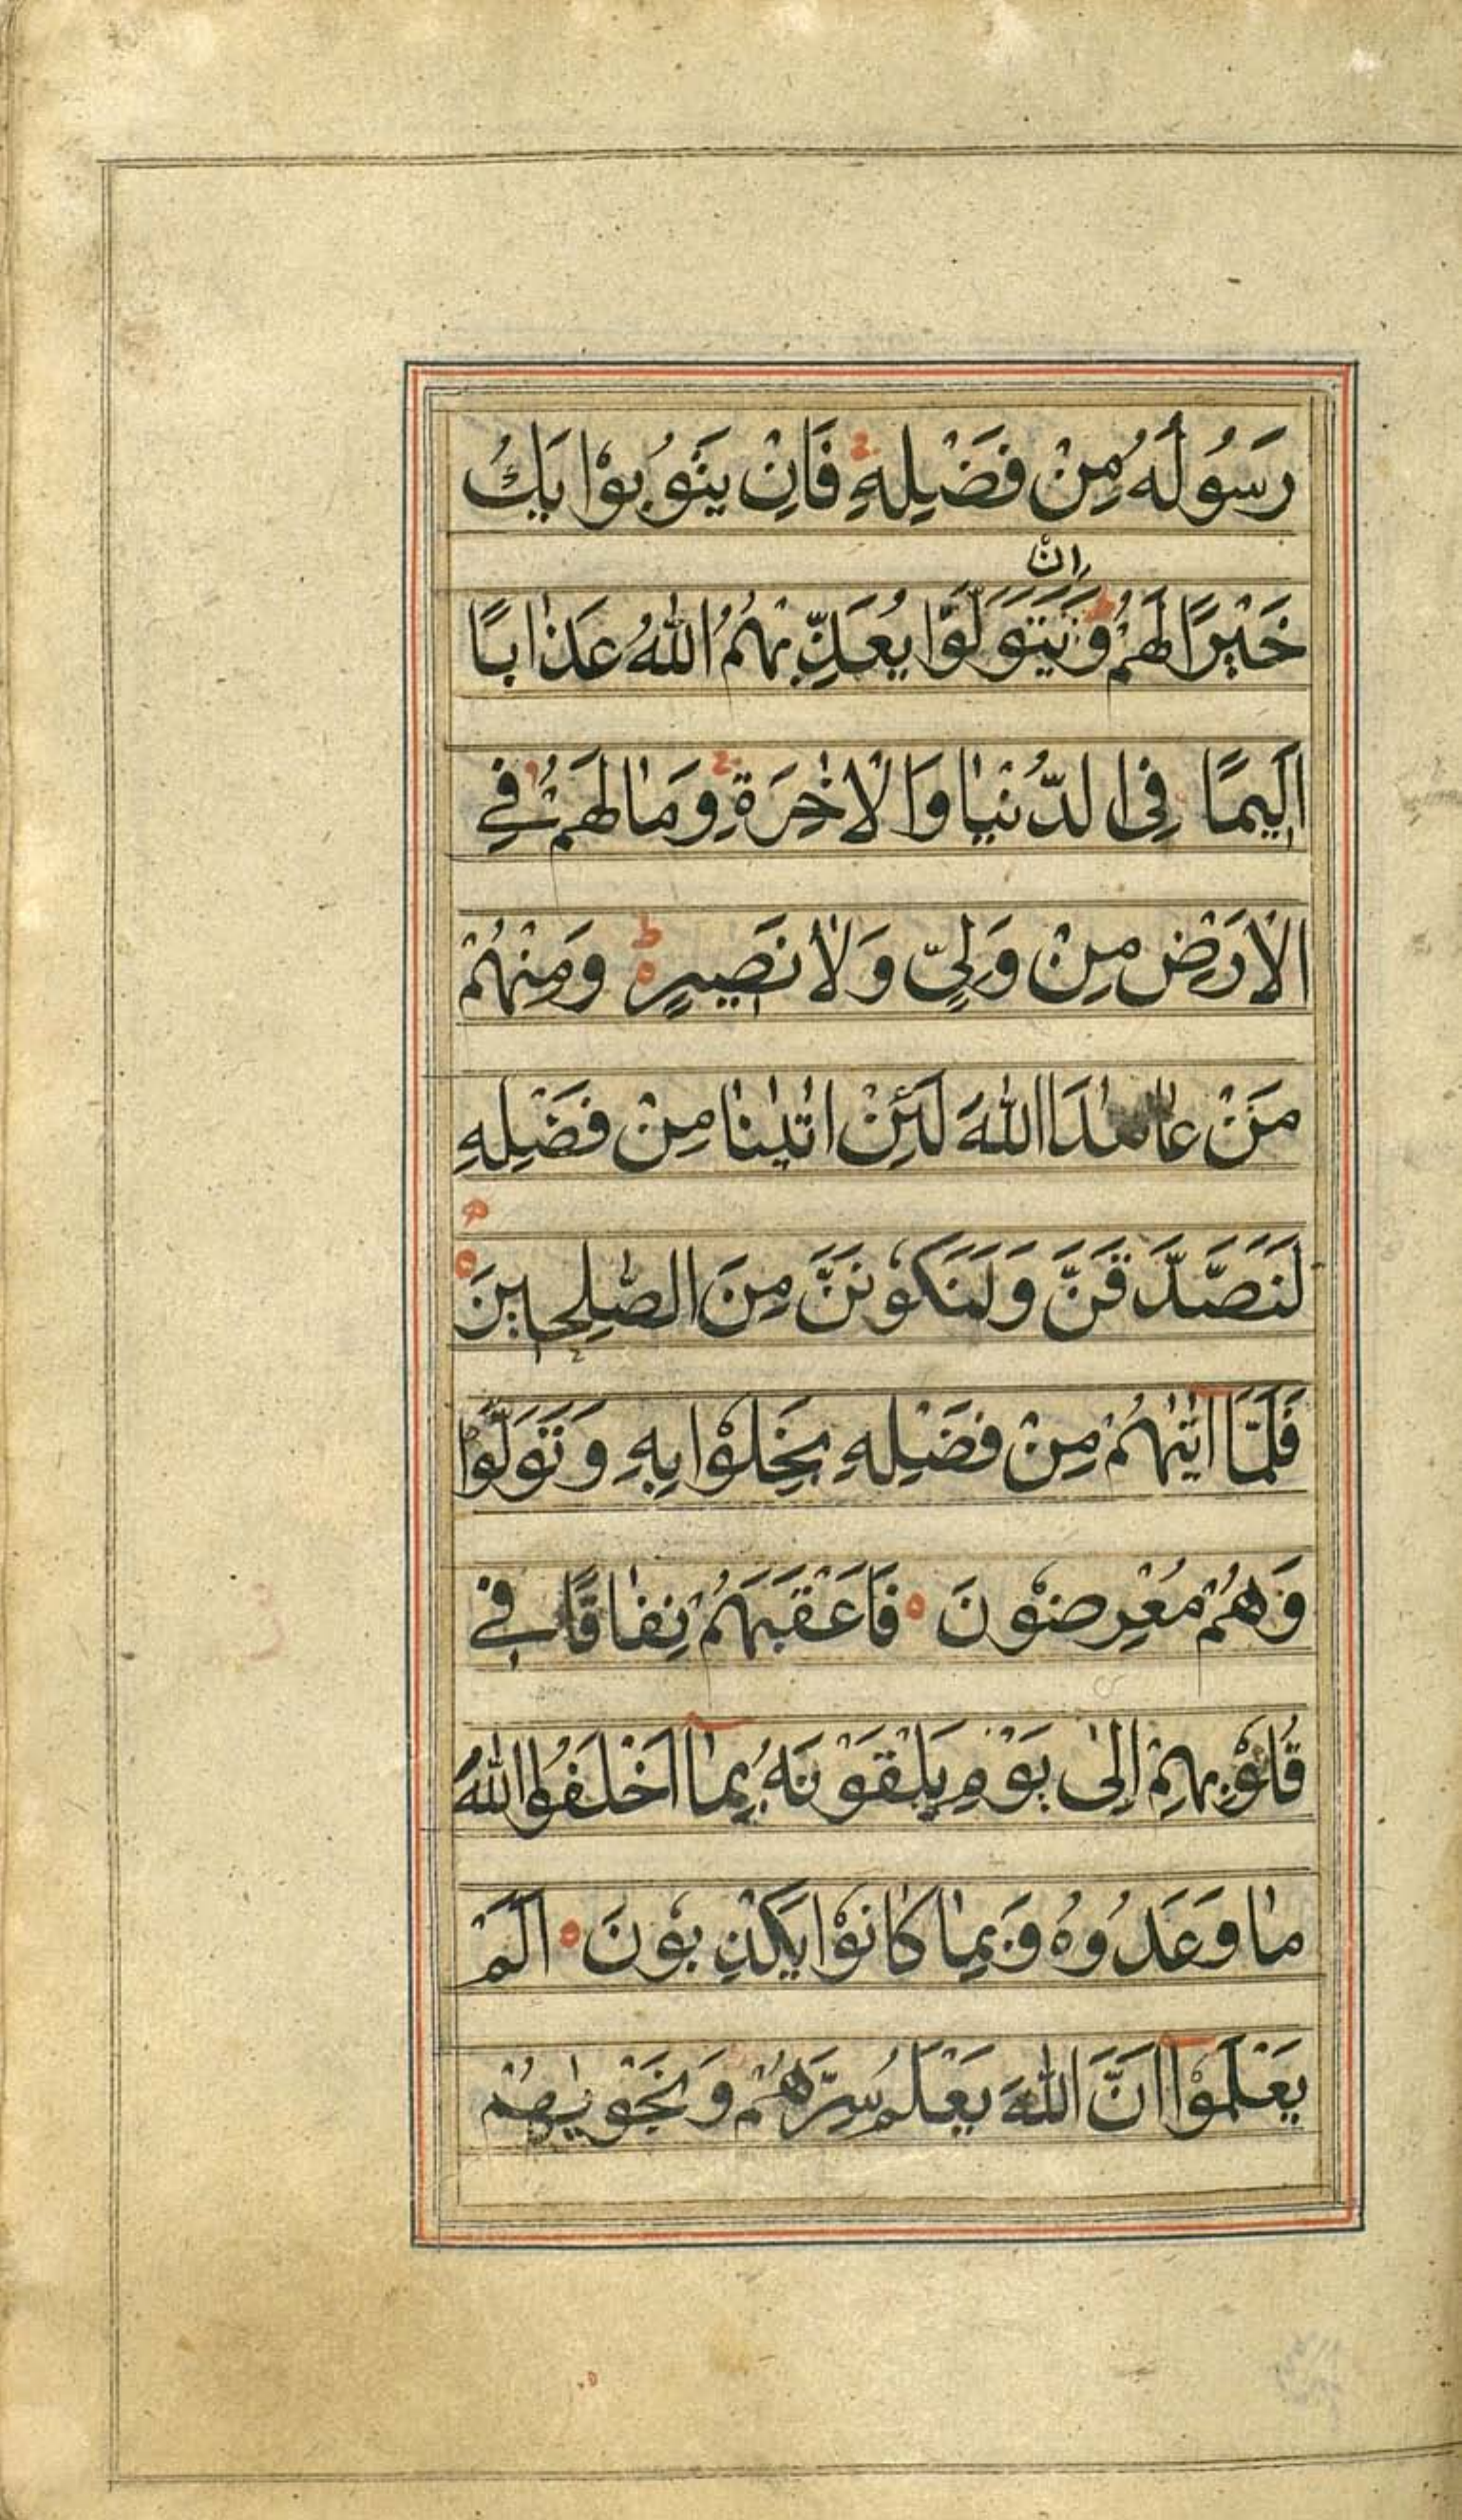 رَسُولُهُ مِنْ فَضْلِهِ فَاِنْ يَتُوبُوْا يَكُ
اِنْ
خَيْرًا لَهُمْ وَ يَتَوَلَّوْا يُعَذِّبْهُمُ اللّٰهُ عَذَابًا
اَلِيمًا فِى الدُّنْيَا وَالْاٰخِرَةِ وَمَا لَهُمْ فِي
الْاَرْضِ مِنْ وَلِيٍّ وَلَا نَصِيرٍ وَمِنْهُمْ
مَنْ عَاهَدَ اللّٰهَ لَئِنْ اٰتٰينَا مِنْ فَضْلِهِ
لَنَصَّدَّقَنَّ وَلَنَكُوْنَنَّ مِنَ الصّٰلِحِينَ
فَلَمَّا اٰتٰيهُمْ مِنْ فَضْلِهِ بَخِلُوْا بِهِ وَتَوَلَّوْا
وَهُمْ مُعْرِضُوْنَ فَاَعْقَبَهُمْ نِفَاقًا فِي
قُلُوْبِهِمْ اِلٰى يَوْمِ يَلْقَوْنَهُ بِمَا اَخْلَفُوا اللّٰهَ
مَا وَعَدُوهُ وَبِمَا كَانُوْا يَكْذِبُوْنَ اَلَمْ
يَعْلَمُوْا اَنَّ اللّٰهَ يَعْلَمُ سِرَّهُمْ وَنَجْوٰيهُمْ